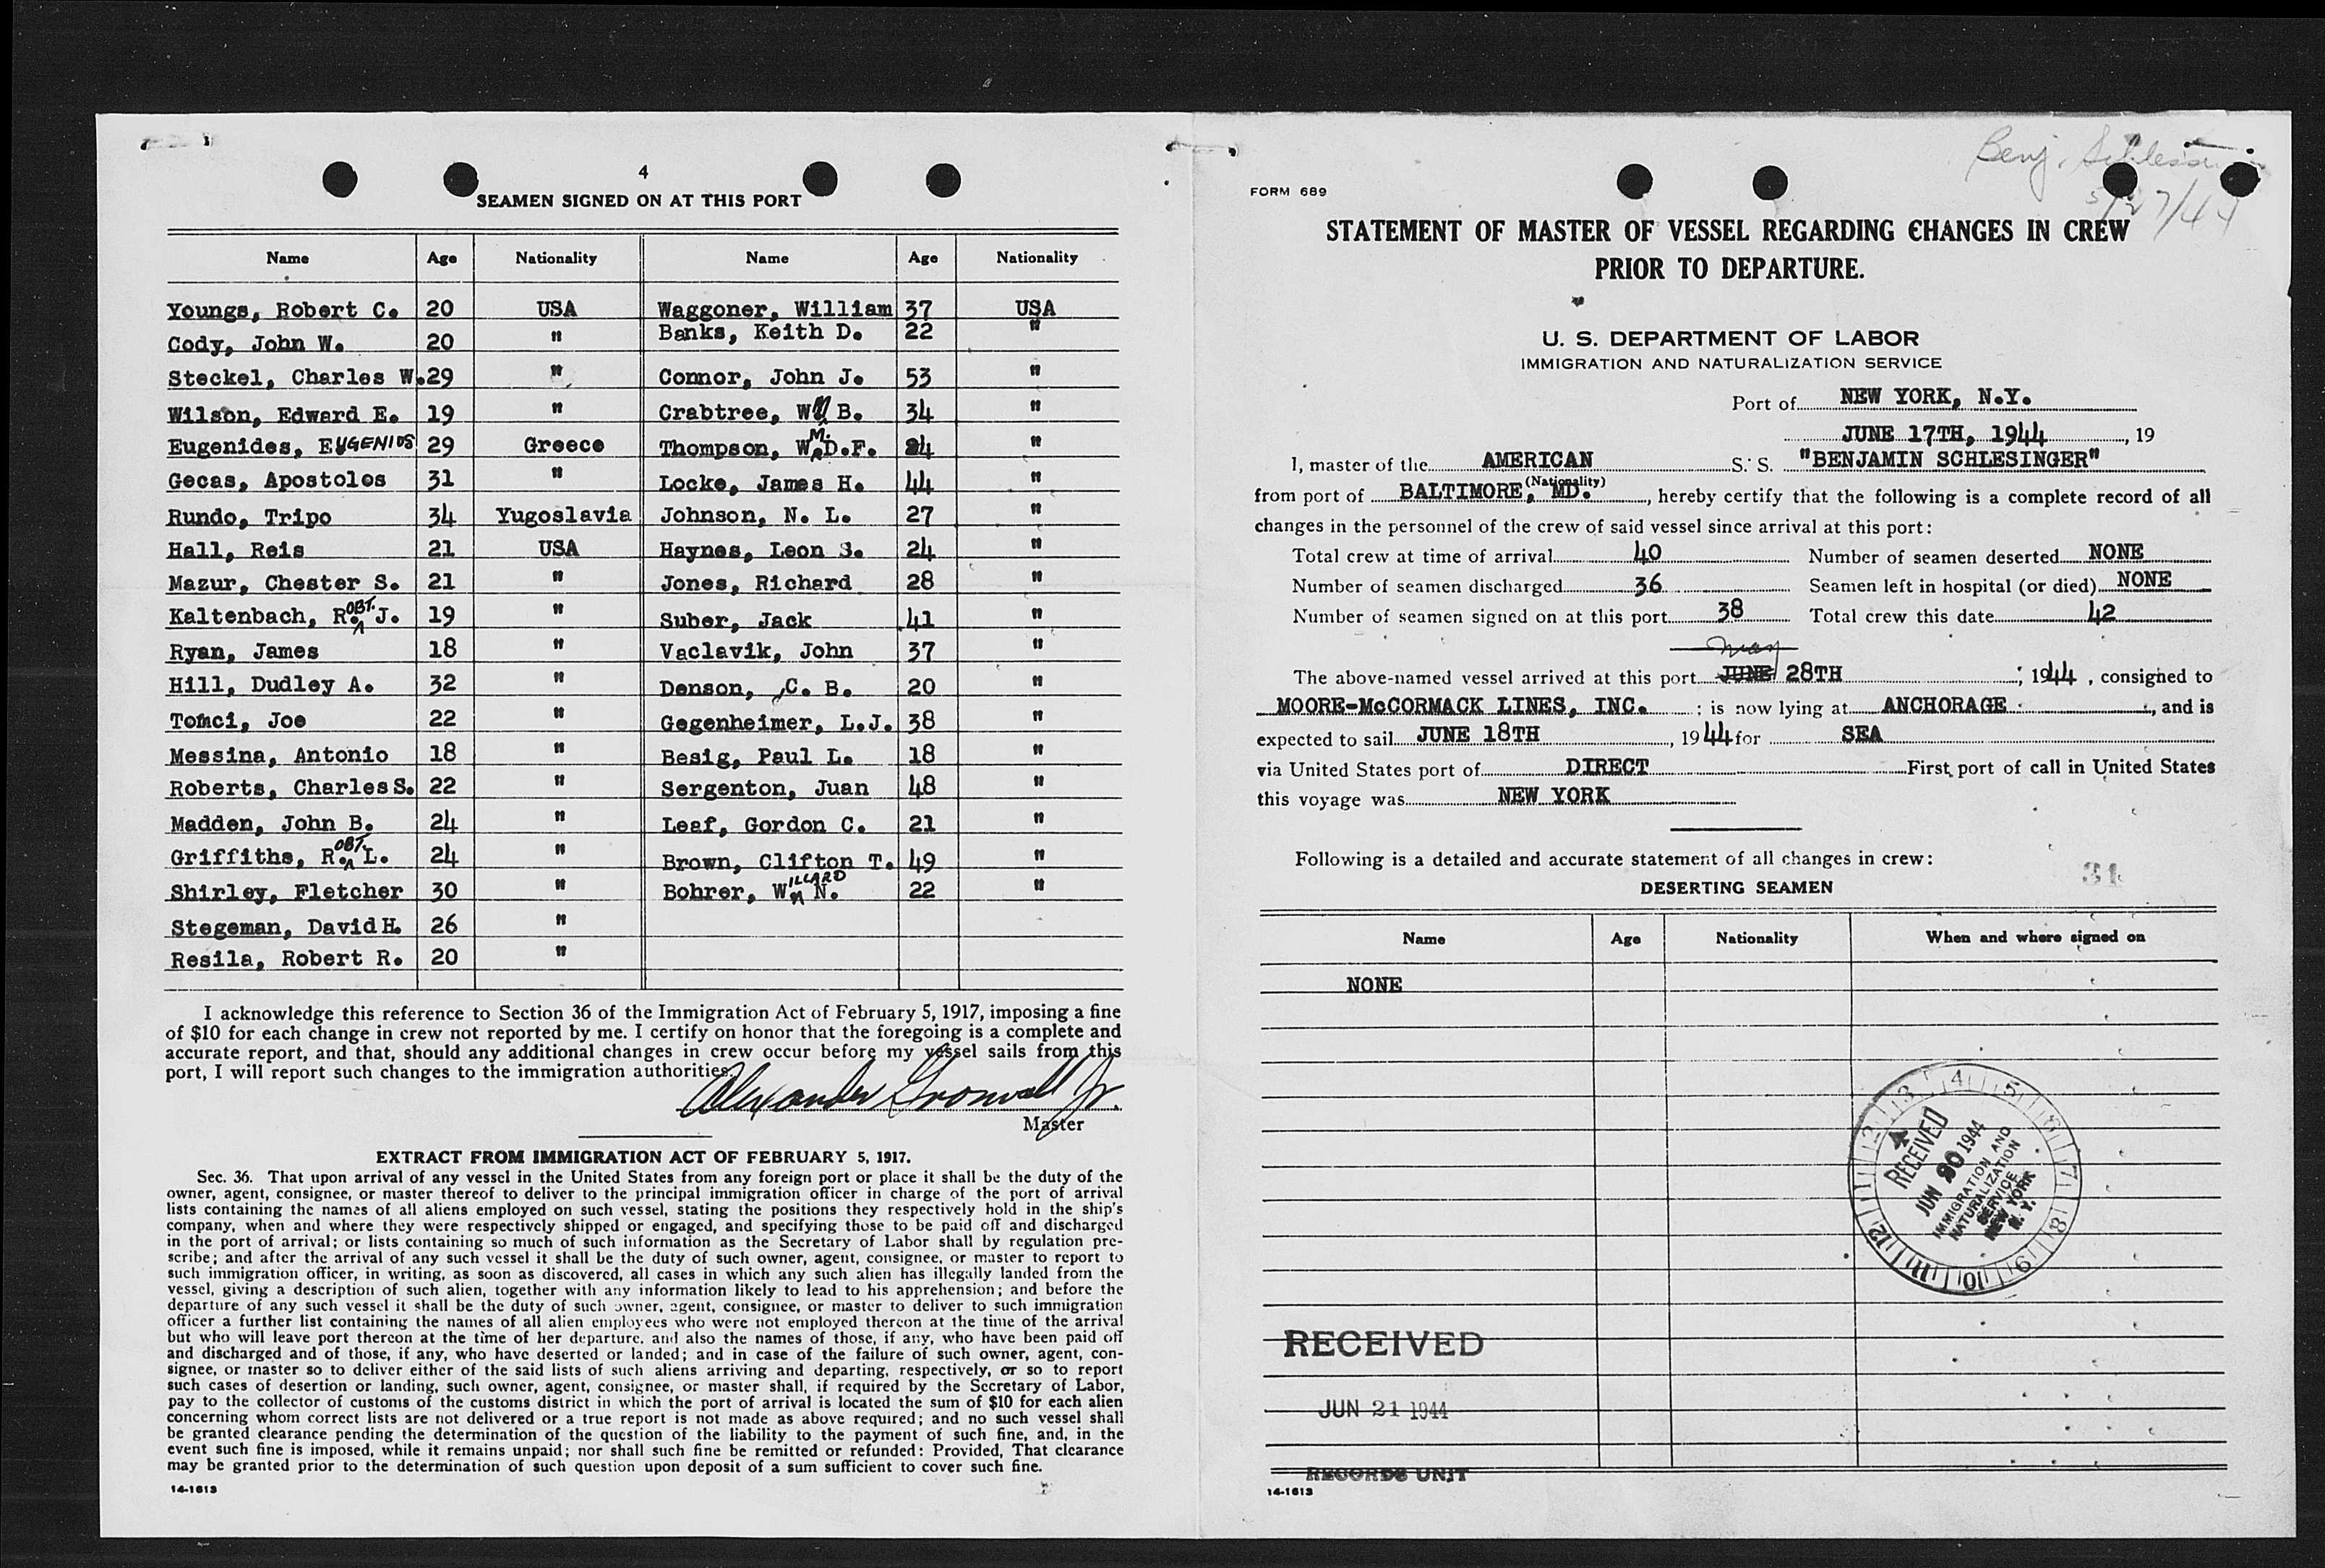 4
SEAMEN SIGNED ON AT THIS PORT
Name Age Nationality Name Age Nationality
Youngs, Robert C. 20 USA Waggoner, William 37 USA
Cody, John W. 20 " Banks, Keith D. 22 "
Steckel, Charles W. 29 " Connor, John J. 53 "
Wilson, Edward E. 19 " Crabtree, Wm B. 34 "
Eugenides, EUGENIOS 29 Greece Thompson, WM.D.F. 24 "
Gecas, Apostolos 31 " Locke, James H. 44 "
Rundo, Tripo 34 Yugoslavia Johnson, N. L. 27 "
Hall, Reis 21 USA Haynes, Leon S. 24 "
Mazur, Chester S. 21 " Jones, Richard 28 "
Kaltenbach, ROBT. J. 19 " Suber, Jack 41 "
Ryan, James 18 " Vaclavik, John 37 "
Hill, Dudley A. 32 " Denson, C. B. 20 "
Tomci, Joe 22 " Gegenheimer, L.J. 38 "
Messina, Antonio 18 " Besig, Paul L. 18 "
Roberts, Charles S. 22 " Sergenton, Juan 48 "
Madden, John B. 24 " Leaf, Gordon C. 21 "
Griffiths, ROBT. L. 24 " Brown, Clifton T. 49 "
Shirley, Fletcher 30 " Bohrer, WILLARD N. 22 "
Stegeman, David H. 26 "
Resila, Robert R. 20 "
I acknowledge this reference to Section 36 of the Immigration Act of February 5, 1917, imposing a fine
of $10 for each change in crew not reported by me. I certify on honor that the foregoing is a complete and
accurate report, and that, should any additional changes in crew occur before my vessel sails from this
port, I will report such changes to the immigration authorities.
Alexander Gronvall Jr.
Master
EXTRACT FROM IMMIGRATION ACT OF FEBRUARY 5, 1917.
Sec. 36. That upon arrival of any vessel in the United States from any foreign port or place it shall be the duty of the
owner, agent, consignee, or master thereof to deliver to the principal immigration officer in charge of the port of arrival
lists containing the names of all aliens employed on such vessel, stating the positions they respectively hold in the ship's
company, when and where they were respectively shipped or engaged, and specifying those to be paid off and discharged
in the port of arrival; or lists containing so much of such information as the Secretary of Labor shall by regulation pre-
scribe; and after the arrival of any such vessel it shall be the duty of such owner, agent, consignee, or master to report to
such immigration officer, in writing, as soon as discovered, all cases in which any such alien has illegally landed from the
vessel, giving a description of such alien, together with any information likely to lead to his apprehension; and before the
departure of any such vessel it shall be the duty of such owner, agent, consignee, or master to deliver to such immigration
officer a further list containing the names of all alien employees who were not employed thereon at the time of the arrival
but who will leave port thereon at the time of her departure, and also the names of those, if any, who have been paid off
and discharged and of those, if any, who have deserted or landed; and in case of the failure of such owner, agent, con-
signee, or master so to deliver either of the said lists of such aliens arriving and departing, respectively, or so to report
such cases of desertion or landing, such owner, agent, consignee, or master shall, if required by the Secretary of Labor,
pay to the collector of customs of the customs district in which the port of arrival is located the sum of $10 for each alien
concerning whom correct lists are not delivered or a true report is not made as above required; and no such vessel shall
be granted clearance pending the determination of the question of the liability to the payment of such fine, and, in the
event such fine is imposed, while it remains unpaid; nor shall such fine be remitted or refunded: Provided, That clearance
may be granted prior to the determination of such question upon deposit of a sum sufficient to cover such fine.
14-1613
Benj.
5/27/44
FORM 689
STATEMENT OF MASTER OF VESSEL REGARDING CHANGES IN CREW
PRIOR TO DEPARTURE.
U. S. DEPARTMENT OF LABOR
IMMIGRATION AND NATURALIZATION SERVICE
Port of NEW YORK, N.Y.
JUNE 17TH, 1944, 19
I, master of the AMERICAN S. S. "BENJAMIN SCHLESINGER"
(Nationality)
from port of BALTIMORE, MD., hereby certify that the following is a complete record of all
changes in the personnel of the crew of said vessel since arrival at this port:
Total crew at time of arrival 40 Number of seamen deserted NONE
Number of seamen discharged 36 Seamen left in hospital (or died) NONE
Number of seamen signed on at this port 38 Total crew this date 42
May
The above-named vessel arrived at this port JUNE 28TH ; 1944, consigned to
MOORE-McCORMACK LINES, INC. ; is now lying at ANCHORAGE, and is
expected to sail JUNE 18TH, 1944 for SEA
via United States port of DIRECT First port of call in United States
this voyage was NEW YORK
Following is a detailed and accurate statement of all changes in crew:
31
DESERTING SEAMEN
Name Age Nationality When and where signed on
NONE
2 3 4 5 6 7 8 9 10 11 12 1
RECEIVED
JUN 20 1944
IMMIGRATION AND
NATURALIZATION
SERVICE
NEW YORK
N. Y.
RECEIVED
JUN 21 1944
RECORDS UNIT
14-1613